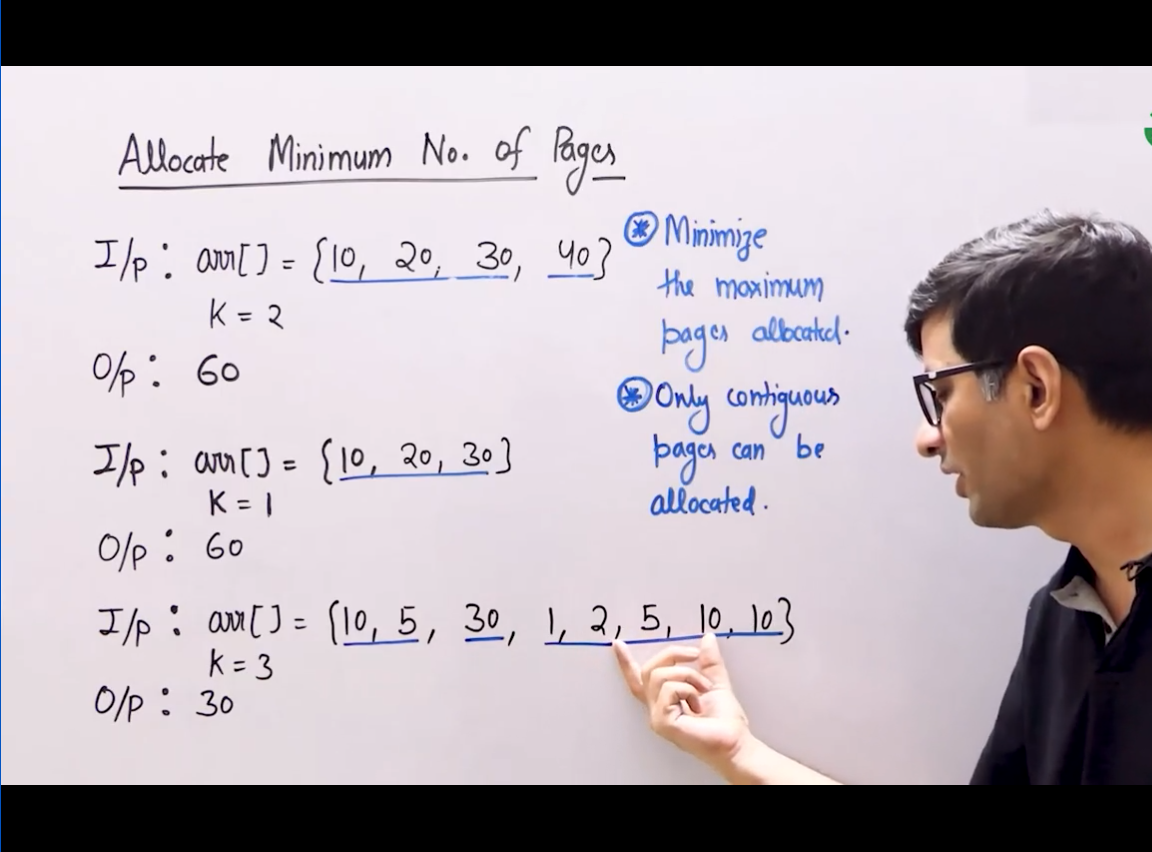 Allocate Minimum No. of Pages
I/p : arr[] = {10, 20, 30, 40}
K = 2
O/p : 60
I/p : arr[] = {10, 20, 30}
K = 1
O/p : 60
I/p : arr[] = {10, 5, 30, 1, 2, 5, 10, 10}
K = 3
O/p : 30
* Minimize
the maximum
pages allocated.
* Only contiguous
pages can be
allocated.